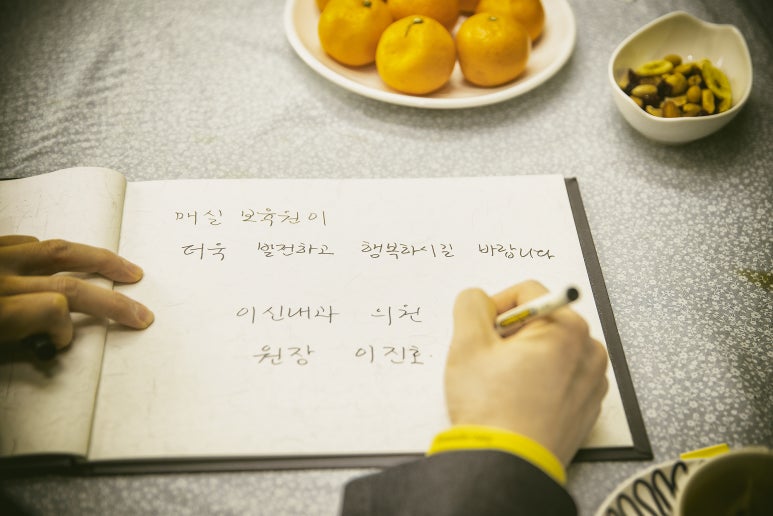 매실 보육원이
더욱 발전하고 행복하시길 바랍니다
이신내과 의원
원장 이진호